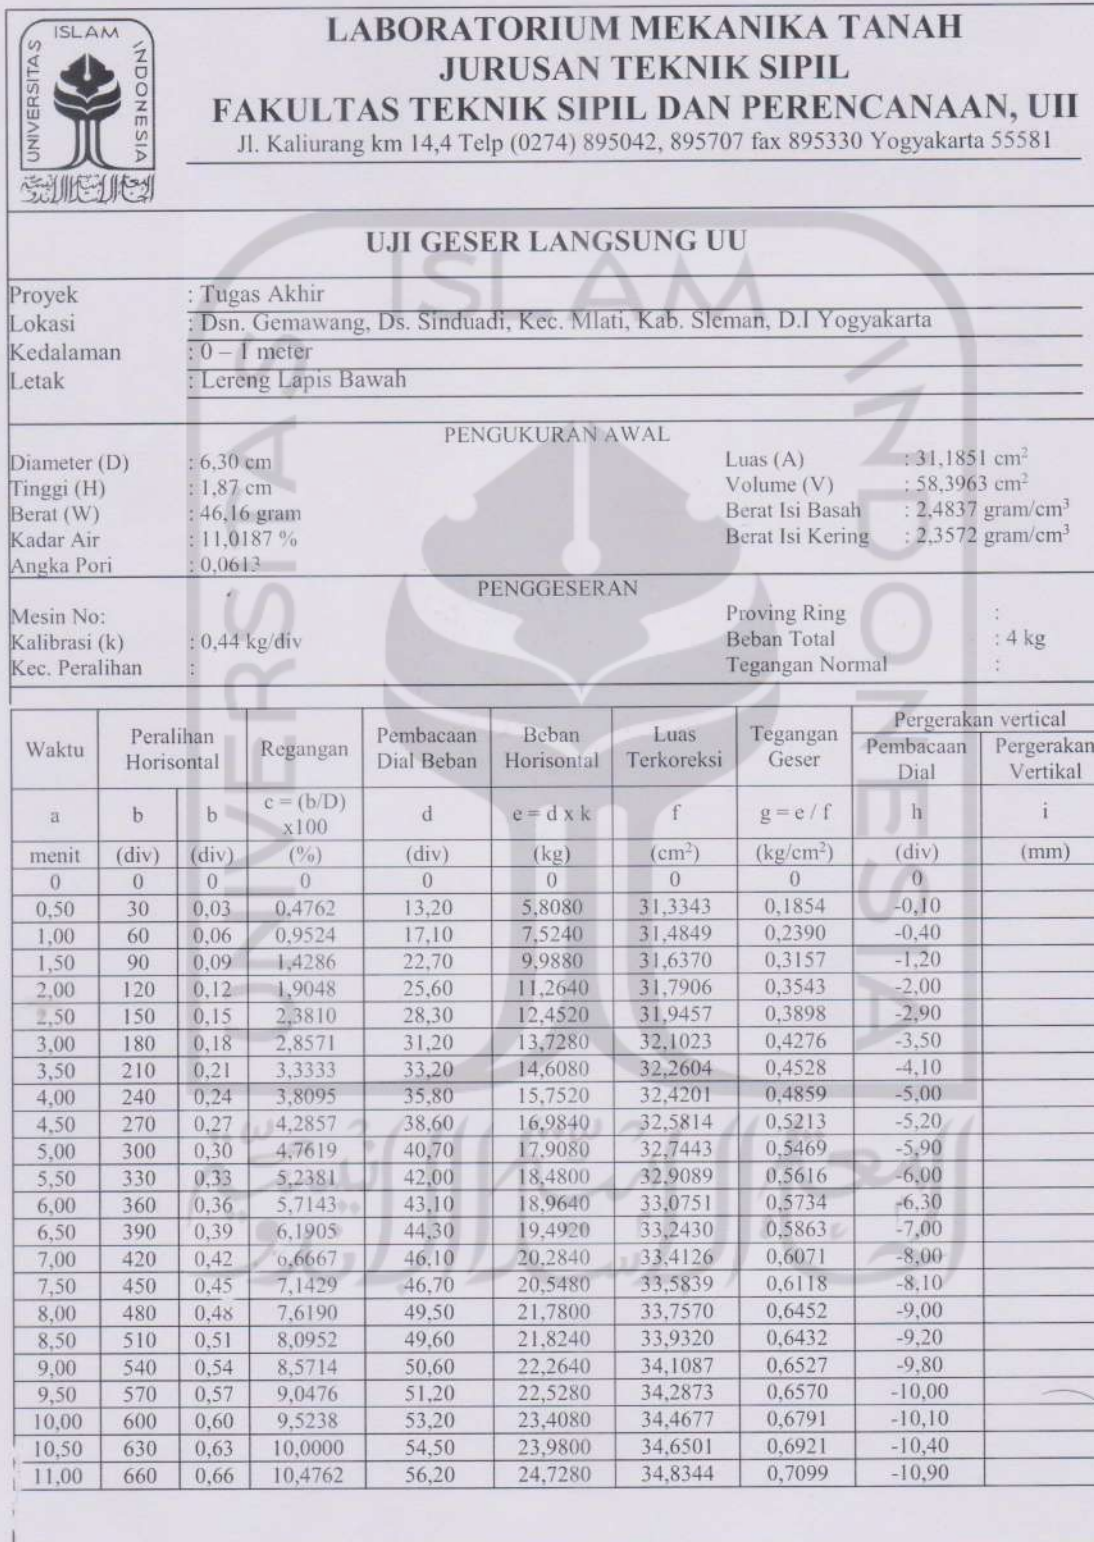 UNIVERSITAS ISLAM INDONESIA
LABORATORIUM MEKANIKA TANAH
JURUSAN TEKNIK SIPIL
FAKULTAS TEKNIK SIPIL DAN PERENCANAAN, UII
Jl. Kaliurang km 14,4 Telp (0274) 895042, 895707 fax 895330 Yogyakarta 55581
UJI GESER LANGSUNG UU
Proyek : Tugas Akhir
Lokasi : Dsn. Gemawang, Ds. Sinduadi, Kec. Mlati, Kab. Sleman, D.I Yogyakarta
Kedalaman : 0 – 1 meter
Letak : Lereng Lapis Bawah
PENGUKURAN AWAL
Diameter (D) : 6,30 cm Luas (A) : 31,1851 cm²
Tinggi (H) : 1,87 cm Volume (V) : 58,3963 cm²
Berat (W) : 46,16 gram Berat Isi Basah : 2,4837 gram/cm³
Kadar Air : 11,0187 % Berat Isi Kering : 2,3572 gram/cm³
Angka Pori : 0,0613
PENGGESERAN
Mesin No: Proving Ring :
Kalibrasi (k) : 0,44 kg/div Beban Total : 4 kg
Kec. Peralihan : Tegangan Normal :
Waktu Peralihan Horisontal Regangan Pembacaan Dial Beban Beban Horisontal Luas Terkoreksi Tegangan Geser Pergerakan vertical
Pembacaan Dial Pergerakan Vertikal
a b b c = (b/D) x100 d e = d x k f g = e / f h i
menit (div) (div) (%) (div) (kg) (cm²) (kg/cm²) (div) (mm)
0 0 0 0 0 0 0 0 0
0,50 30 0,03 0,4762 13,20 5,8080 31,3343 0,1854 -0,10
1,00 60 0,06 0,9524 17,10 7,5240 31,4849 0,2390 -0,40
1,50 90 0,09 1,4286 22,70 9,9880 31,6370 0,3157 -1,20
2,00 120 0,12 1,9048 25,60 11,2640 31,7906 0,3543 -2,00
2,50 150 0,15 2,3810 28,30 12,4520 31,9457 0,3898 -2,90
3,00 180 0,18 2,8571 31,20 13,7280 32,1023 0,4276 -3,50
3,50 210 0,21 3,3333 33,20 14,6080 32,2604 0,4528 -4,10
4,00 240 0,24 3,8095 35,80 15,7520 32,4201 0,4859 -5,00
4,50 270 0,27 4,2857 38,60 16,9840 32,5814 0,5213 -5,20
5,00 300 0,30 4,7619 40,70 17,9080 32,7443 0,5469 -5,90
5,50 330 0,33 5,2381 42,00 18,4800 32,9089 0,5616 -6,00
6,00 360 0,36 5,7143 43,10 18,9640 33,0751 0,5734 -6,30
6,50 390 0,39 6,1905 44,30 19,4920 33,2430 0,5863 -7,00
7,00 420 0,42 6,6667 46,10 20,2840 33,4126 0,6071 -8,00
7,50 450 0,45 7,1429 46,70 20,5480 33,5839 0,6118 -8,10
8,00 480 0,48 7,6190 49,50 21,7800 33,7570 0,6452 -9,00
8,50 510 0,51 8,0952 49,60 21,8240 33,9320 0,6432 -9,20
9,00 540 0,54 8,5714 50,60 22,2640 34,1087 0,6527 -9,80
9,50 570 0,57 9,0476 51,20 22,5280 34,2873 0,6570 -10,00
10,00 600 0,60 9,5238 53,20 23,4080 34,4677 0,6791 -10,10
10,50 630 0,63 10,0000 54,50 23,9800 34,6501 0,6921 -10,40
11,00 660 0,66 10,4762 56,20 24,7280 34,8344 0,7099 -10,90